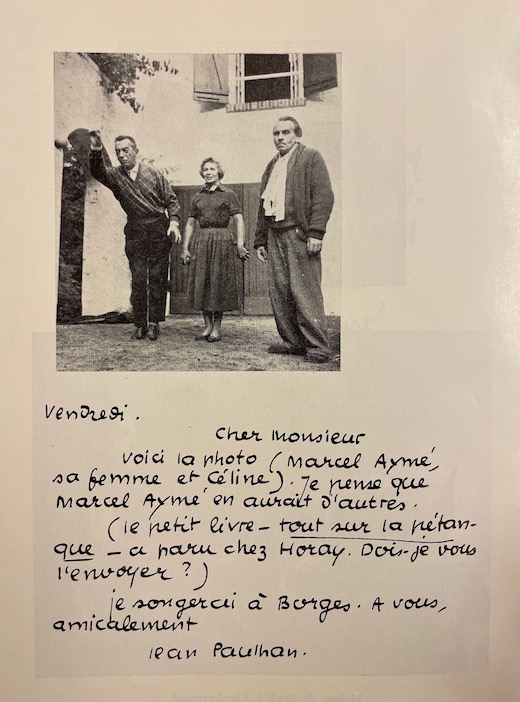 Vendredi.
Cher Monsieur
Voici la photo (Marcel Aymé,
sa femme et Céline). Je pense que
Marcel Aymé en aurait d'autres.
(le petit livre – tout sur la pétan-
que – a paru chez Horay. Dois-je vous
l'envoyer ?)
je songerai à Borges. A vous,
amicalement
Jean Paulhan.